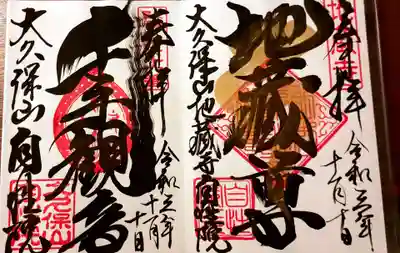 奉拝
令和三年
十一月十日
地蔵尊
大久保山地蔵寺自性院
奉拝
令和三年
十一月
十日
千手観音
大久保山自性院